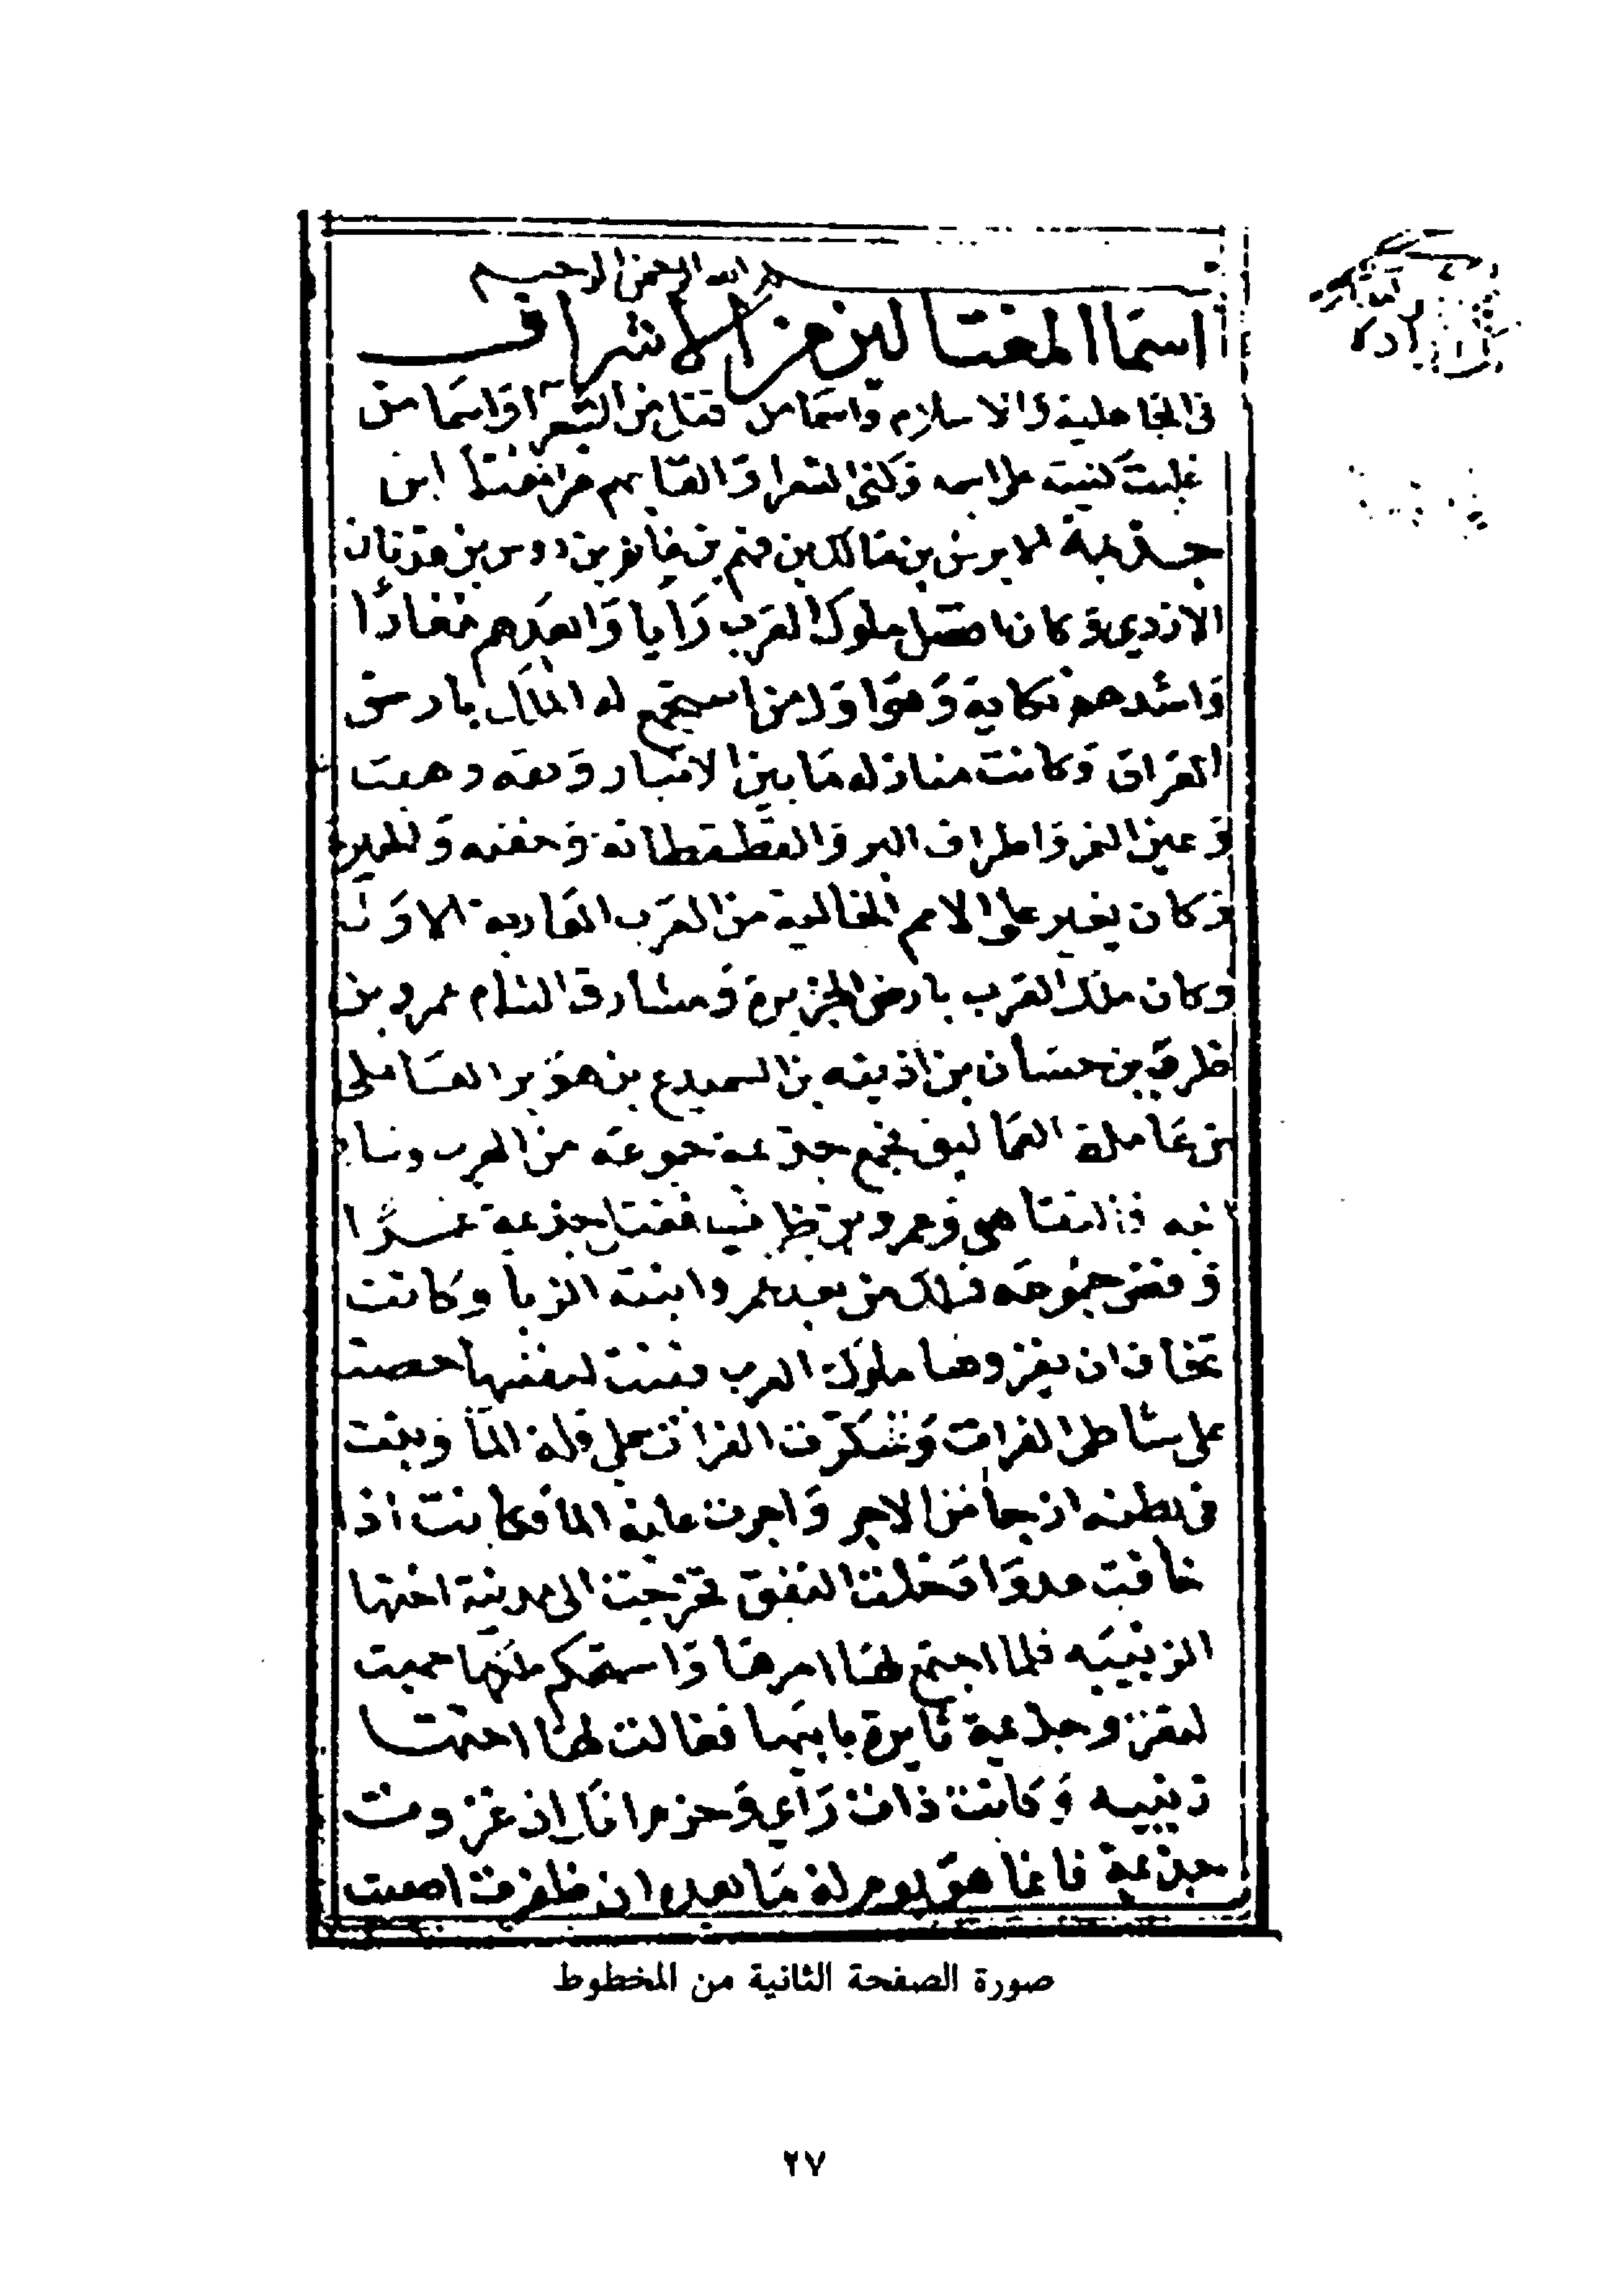 بسم الله الرحمن الرحيم
اسما المغتالين من الاشراف
في الجاهلية و الاسلام واسما من قتل من الشعرا واسما من
غلبت كنيته على اسمه وكنى الشعرا والقابهم
جذيمة الابرش بن مالك بن فهم بن غانم بن دوس بن عدنان
الازدي وكان افضل ملوك العرب رايا وابعدهم مغارا
واشدهم نكاية وهو اول من استجمع له الملك بارض
العراق وكانت منازله ما بين الانبار وبقه وهيت
وعين التمر واطراف البر والقطقطانة وخفيه والحيرة
وكان يغير على الامم الخالية من العرب العاربة الاولى
وكان ملك العرب بارض الجزيرة ومشارق الشام عمرو بن
ظرب بن حسان بن اذينه بن السميدع بن هوبر العاملي
من عاملة العماليق فجمع جذيمة جموعه من العرب وسار
اليه فالتقا هو وعمرو بن ظرب فقتل جذيمة عمرا
وفض جموعه فملك من بعد عمرو ابنته الزبا وكانت
تخاف ان يغزوها ملوك العرب فبنت لنفسها حصنا
على شاطى الفرات وسكرت الفرات على قلة الما وبنت
في بطنه ازجا من الاجر واجرت عليه الما فكانت اذا
خافت عدوا دخلت النفق فخرجت الى مدينة اختها
الزبيبه فلما اجتمع لها امرها واستحكم ملكها
لغزو جذيمة ثايرة بابيها فقالت لها اختها
زبيبه وكانت ذات راي وحزم انك ان غزوت
جذيمة فانما هو يوم له ما بعده ان ظفرت اصبت
صورة الصفحة الثانية من المخطوط
٢٧